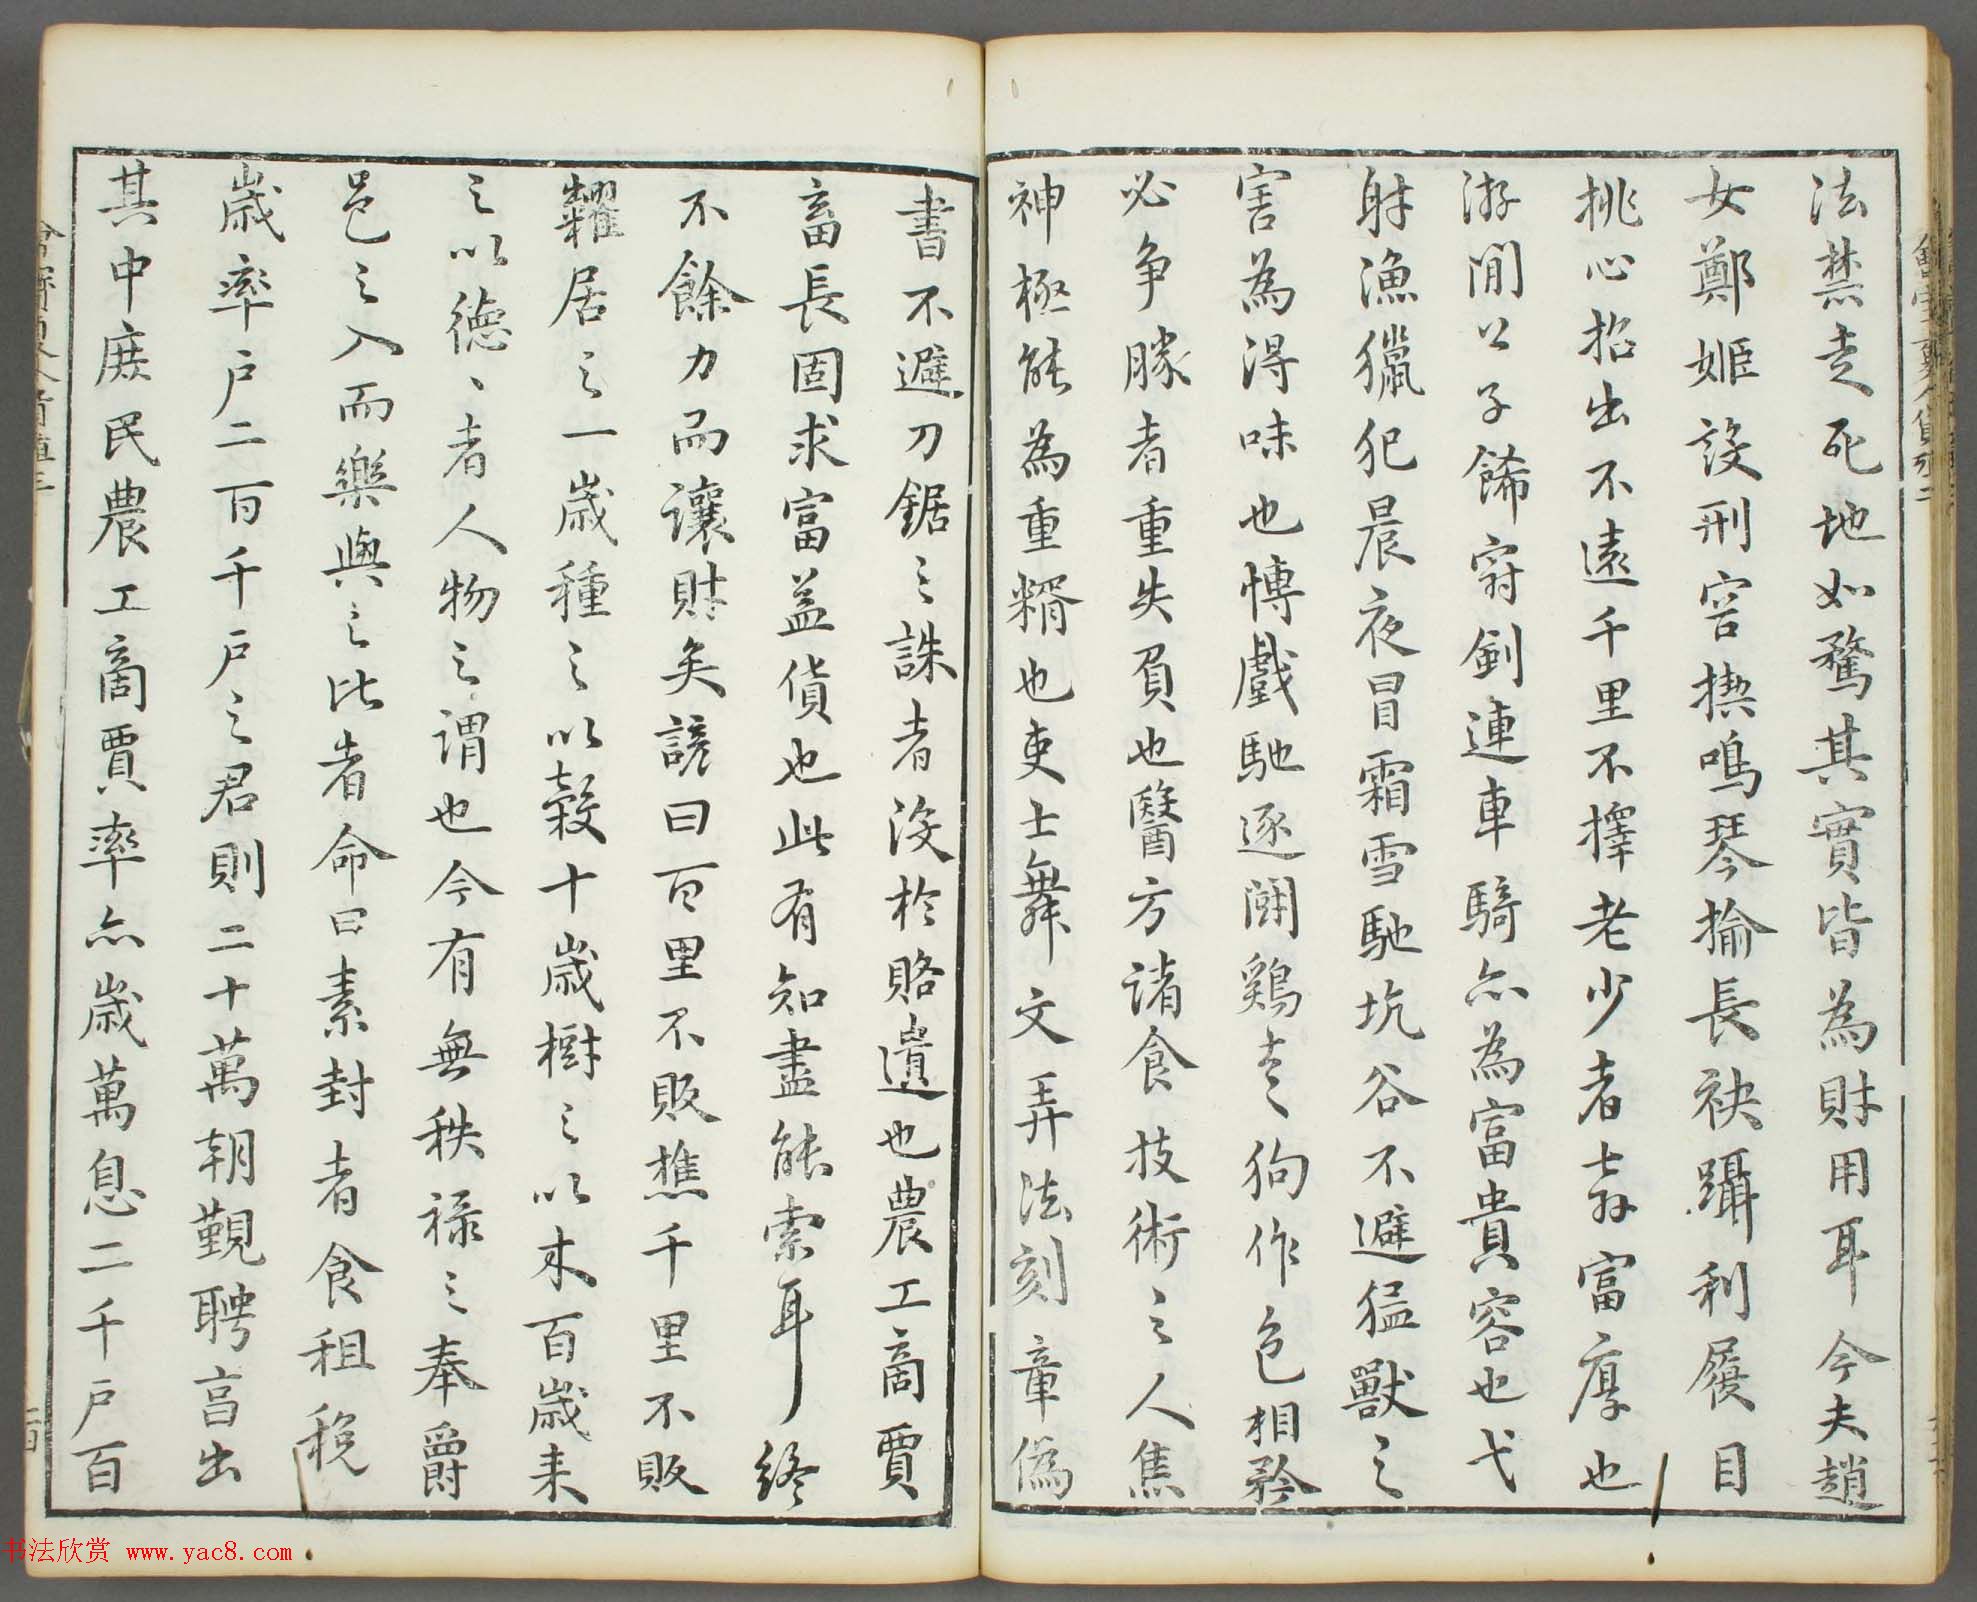 法禁走死地如騖其實皆為財用耳今夫趙
女鄭姬設刑容揳鳴琴揄長袂躡利屣目
挑心招出不遠千里不擇老少者奔富厚也
游閒公子飾冠劍連車騎亦為富貴容也弋
射漁獵犯晨夜冒霜雪馳坑谷不避猛獸之
害為得味也博戲馳逐鬭鷄走狗作色相矜
必爭勝者重失負也醫方諸食技術之人焦
神極能為重糈也吏士舞文弄法刻章偽
書不避刀鋸之誅者沒於賂遺也農工商賈
畜長固求富益貨也此有知盡能索耳終
不餘力而讓財矣諺曰百里不販樵千里不販
糴居之一歲種之以穀十歲樹之以木百歲来
之以德〻者人物之謂也今有無秩祿之奉爵
邑之入而樂與之比者命曰素封者食租稅
歲率戶二百千戶之君則二十萬朝覲聘享出
其中庶民農工商賈率亦歲萬息二千戶百
书法欣赏 www.yac8.com